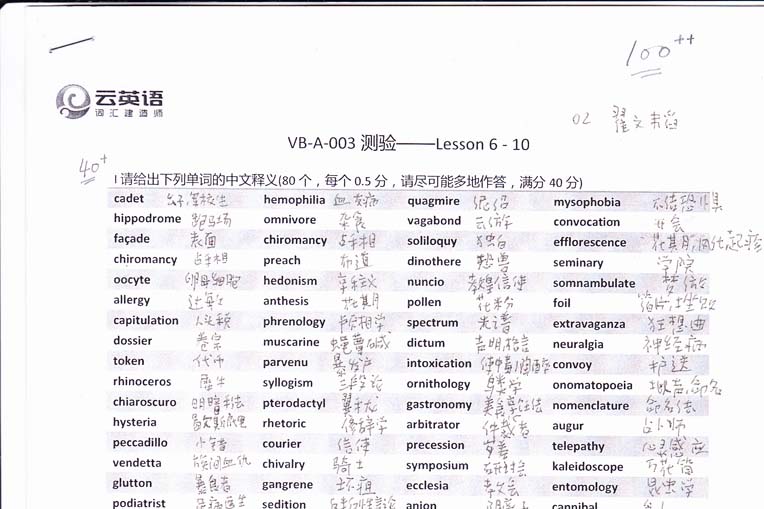 100++
云英语
词汇建造师
02 翟文韬
VB-A-003 测验——Lesson 6 - 10
40+
I 请给出下列单词的中文释义(80 个，每个 0.5 分，请尽可能多地作答，满分 40 分)
cadet hemophilia 血友病 quagmire 泥沼 mysophobia
hippodrome 跑马场 omnivore 杂食 vagabond convocation
façade 表面 chiromancy 占手相 soliloquy 独白 efflorescence 花期,风化起疹
chiromancy 占手相 preach 布道 dinothere 恐兽 seminary 学院
oocyte 卵母细胞 hedonism 享乐主义 nuncio 教皇信使 somnambulate 梦游
allergy anthesis 花期 pollen 花粉 foil
capitulation phrenology 颅相学 spectrum 光谱 extravaganza 狂想曲
dossier 卷宗 muscarine 蝇蕈碱 dictum 声明,格言 neuralgia 神经病
token 代币 parvenu 暴发户 intoxication convoy 护送
rhinoceros 犀牛 syllogism 三段论 ornithology 鸟类学 onomatopoeia 拟声命名
chiaroscuro 明暗法 pterodactyl 翼手龙 gastronomy nomenclature 命名法
hysteria rhetoric 修辞学 arbitrator 仲裁者 augur 占卜师
peccadillo 小错 courier 信使 precession 岁差 telepathy 心灵感应
vendetta 族间血仇 chivalry 骑士 symposium 研讨会 kaleidoscope 万花筒
glutton 暴食者 gangrene 坏疽 ecclesia entomology 昆虫学
podiatrist 足病医生 sedition anion cannibal